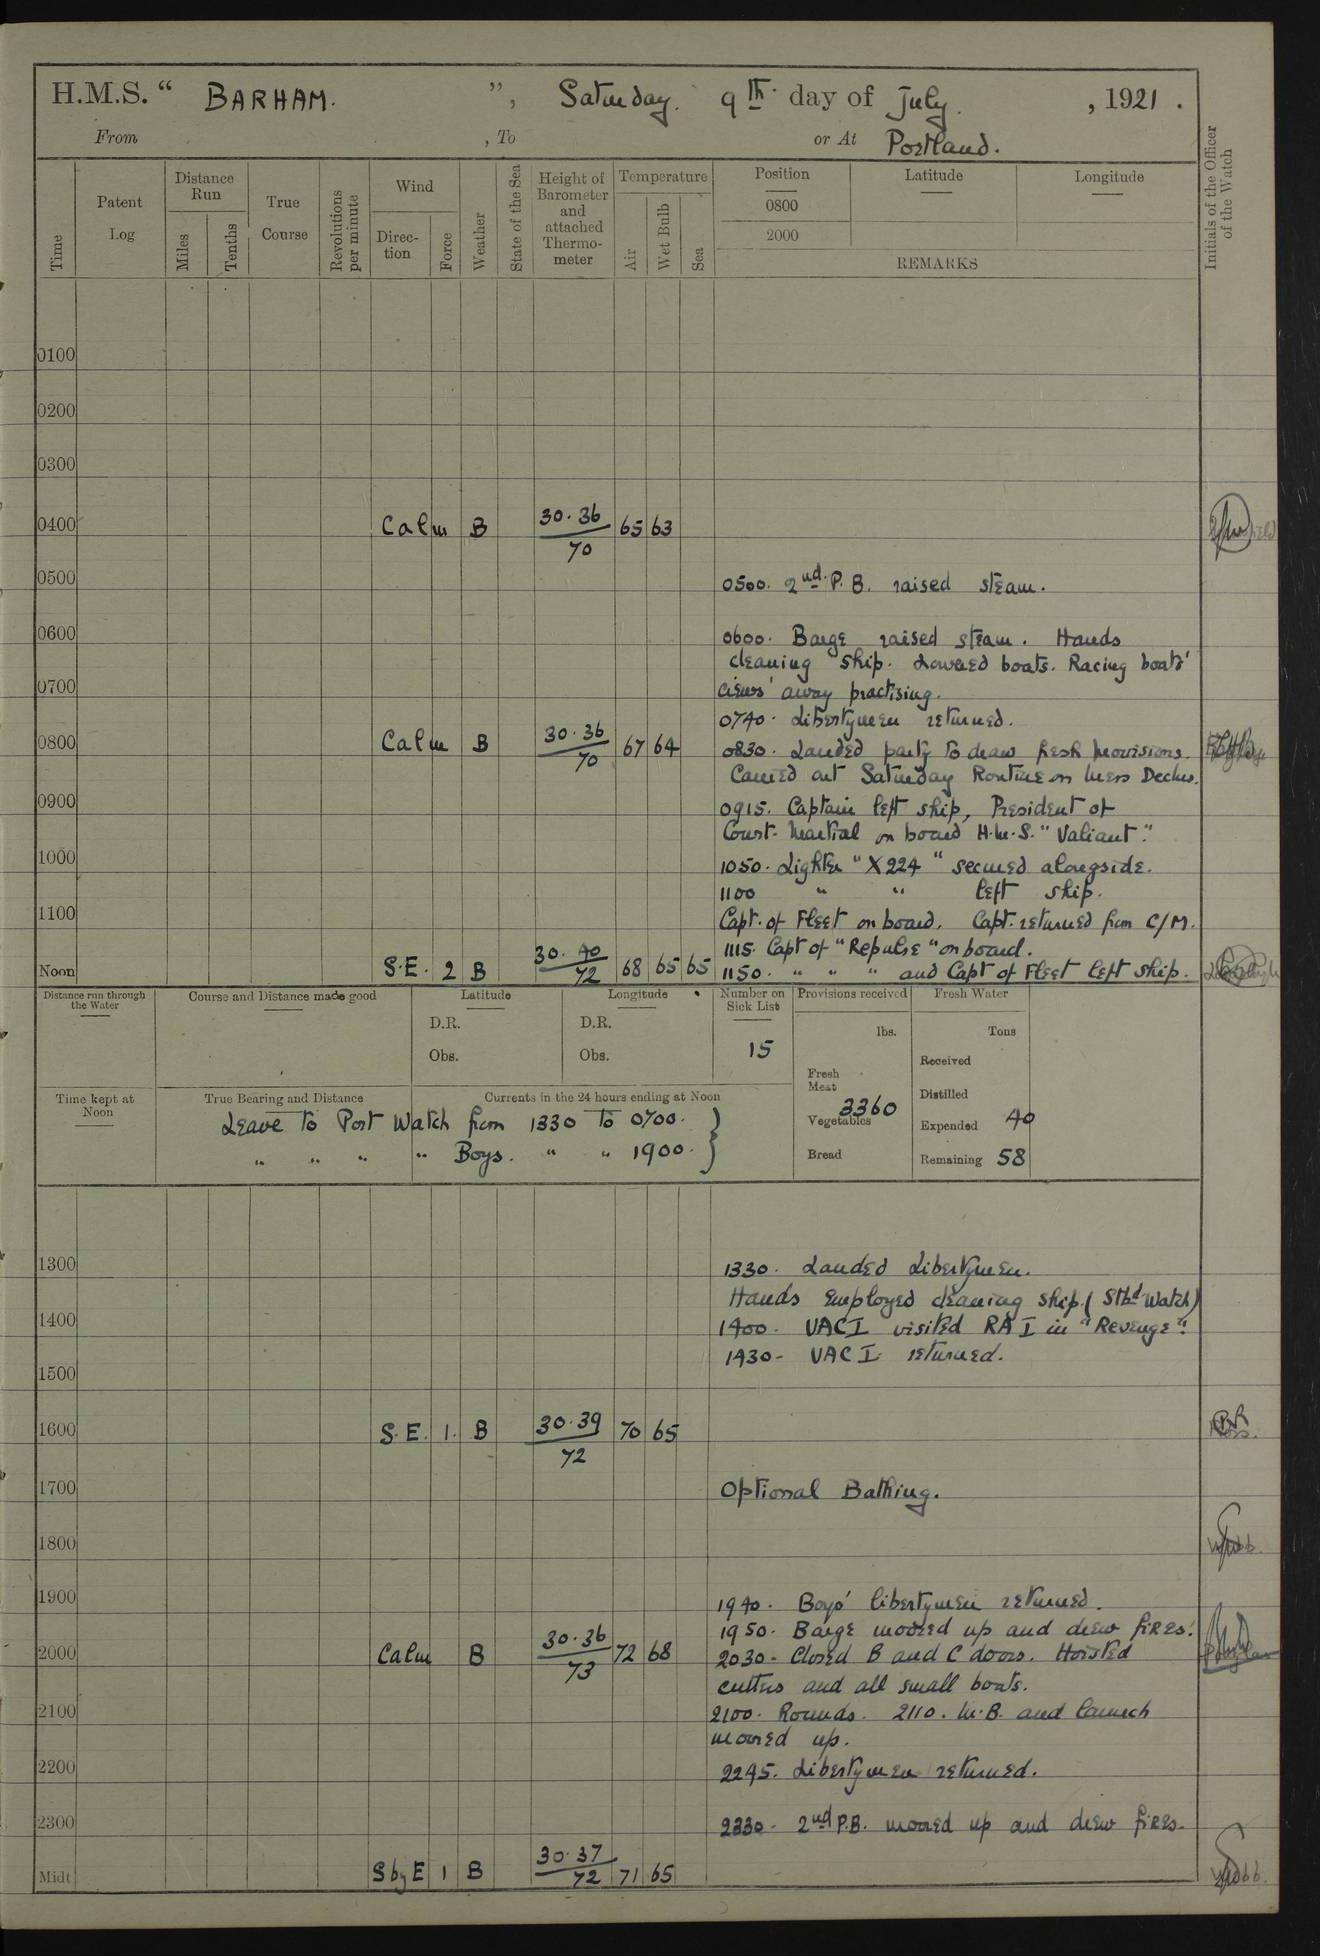 H.M.S. " BARHAM. ", Saturday. 9th. day of July. , 1921 .
From , To or At Portland.
Time
Patent Log
Distance Run
Miles
Tenths
True Course
Revolutions per minute
Wind
Direction
Force
Weather
State of the Sea
Height of Barometer and attached Thermometer
Temperature
Air
Wet Bulb
Sea
Position
0800
2000
Latitude
Longitude
REMARKS
Initials of the Officer of the Watch
0100
0200
0300
0400 Calm B 30.36/70 65 63
0500
0500. 2nd. P.B. raised steam.
0600
0600. Barge raised steam. Hands
cleaning ship. Lowered boats. Racing boats'
0700
crews' away practising.
0740. Libertymen returned.
0800 Calm B 30.36/70 67 64
0830. Landed party to draw fresh provisions.
Carried out Saturday Routine on Mess Decks.
0900
0915. Captain left ship, President of
Court-Martial on board H.M.S. "Valiant".
1000
1050. Lighter "X224" secured alongside.
1100 " " left ship.
1100
Capt. of Fleet on board. Capt. returned from C/M.
1115. Capt of "Repulse" on board.
Noon S.E. 2 B 30.40/72 68 65 65
1150. " " " and Capt of Fleet left ship.
Distance run through the Water
Course and Distance made good
Latitude
D.R.
Obs.
Longitude
D.R.
Obs.
Number on Sick List
15
Provisions received
lbs.
Fresh Meat
3360
Vegetables
Bread
Fresh Water
Tons
Received
Distilled
Expended 40
Remaining 58
Time kept at Noon
True Bearing and Distance
Currents in the 24 hours ending at Noon
Leave to Port Watch from 1330 to 0700. }
" " " " Boys. " " 1900.
1300
1330. Landed Libertymen.
Hands employed cleaning ship. (Stbd Watch)
1400
1400. VACI visited RAI in "Revenge".
1430- VACI returned.
1500
1600 S.E. 1. B 30.39/72 70 65
1700
Optional Bathing.
1800
Webb.
1900
1940. Boys' libertymen returned.
1950. Barge moored up and drew fires.
2000 Calm B 30.36/73 72 68
2030- Closed B and C doors. Hoisted
cutters and all small boats.
2100
2100. Rounds. 2110. M.B. and launch
moored up.
2200
2245. Libertymen returned.
2300
2330. 2nd P.B. moored up and drew fires.
Midt S by E 1 B 30.37/72 71 65
Webb.